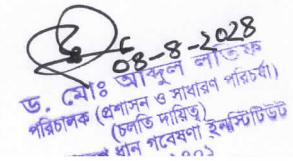 08-8-2028
ড. মোঃ আব্দুল লতিফ
পরিচালক (প্রশাসন ও সাধারণ পরিচর্যা)
(চলতি দায়িত্ব)
ধান গবেষণা ইনস্টিটিউট